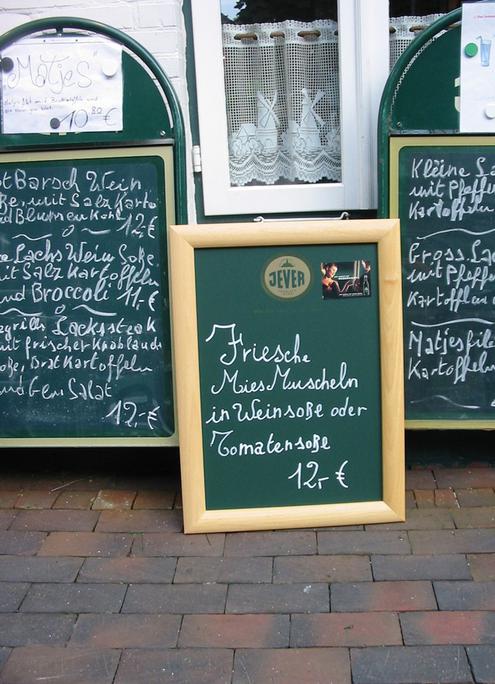 Matjes
10 80 €
otBarsch Wein
ße, mit Salz Karto
nd Blumen Kohl
12,-€
Lachs Wein Soße
it Salz Kartoffeln
und Broccoli 11,-€
grillt Lackssteak
mit frischer Knoblauch
oße, Brat Kartoffeln
und Gem Salat
12,-€
JEVER
Friesche
Mies Muscheln
in Weinsoße oder
Tomatensoße
12,- €
Kleine
mit Pfeffe
Kartoffeln
Gross. La
mit Pfeffe
Kartoffeln
Matjesfile
Kartoffeln